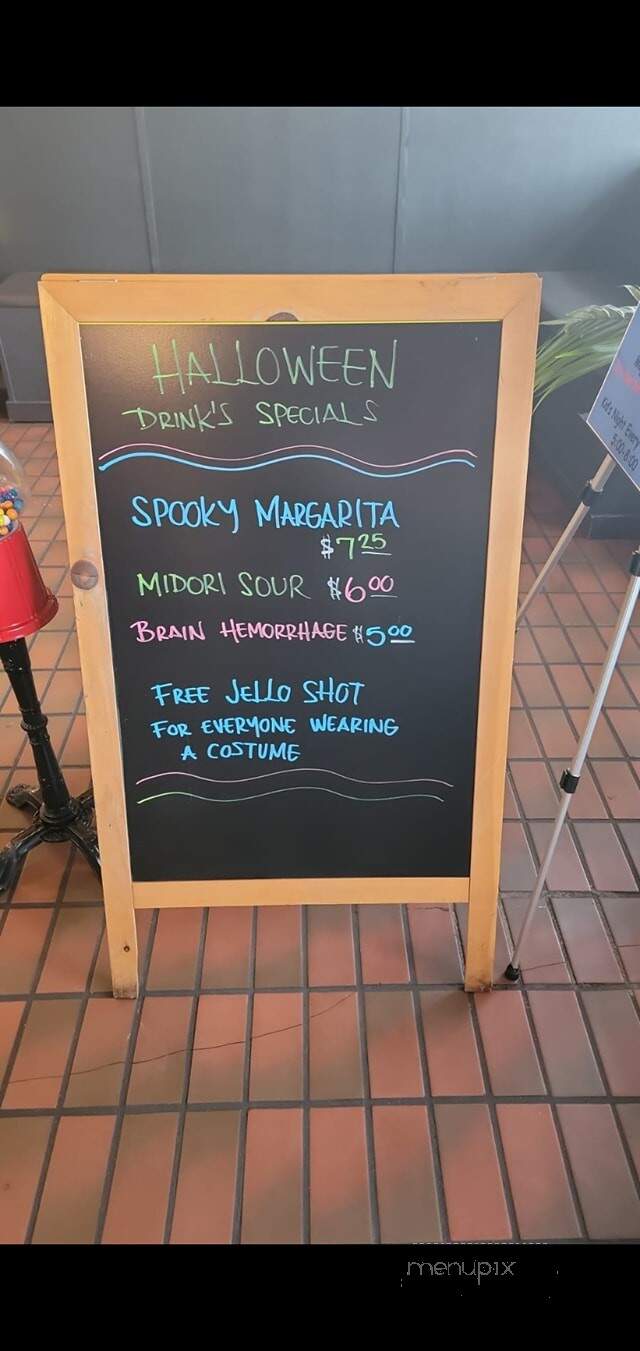 HALLOWEEN
DRINK'S SPECIALS
SPOOKY MARGARITA
$7.25
MIDORI SOUR $6.00
BRAIN HEMORRHAGE $5.00
FREE JELLO SHOT
FOR EVERYONE WEARING
A COSTUME
Kids Night Every
5:00-8:00
menupix